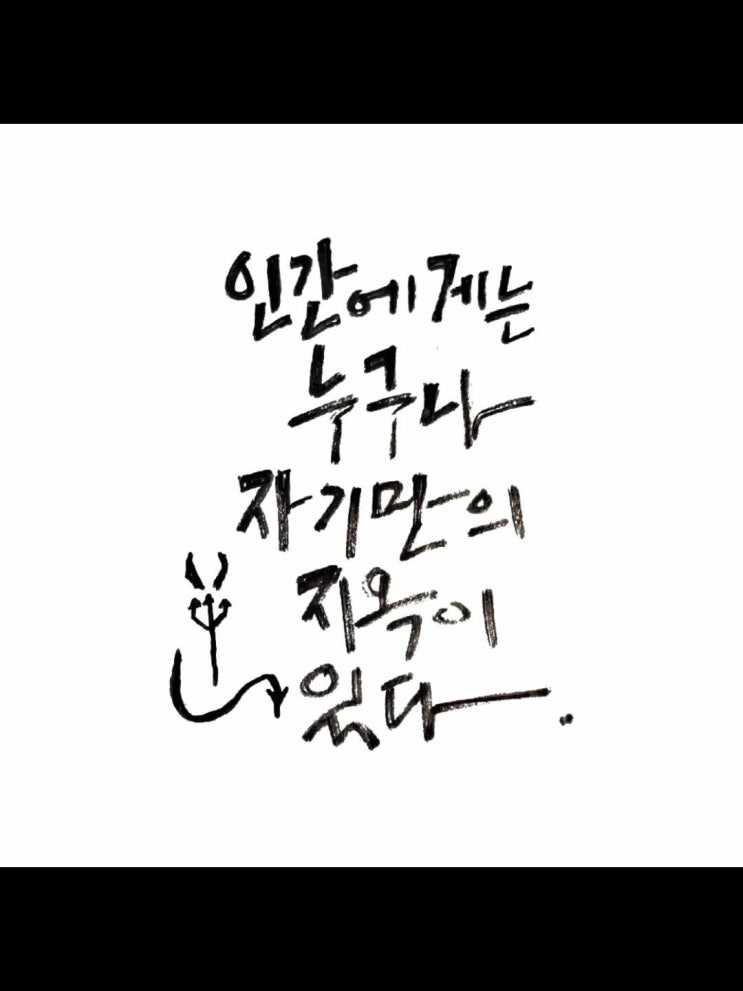 인간에게는
누구나
자기만의
지옥이
있다.